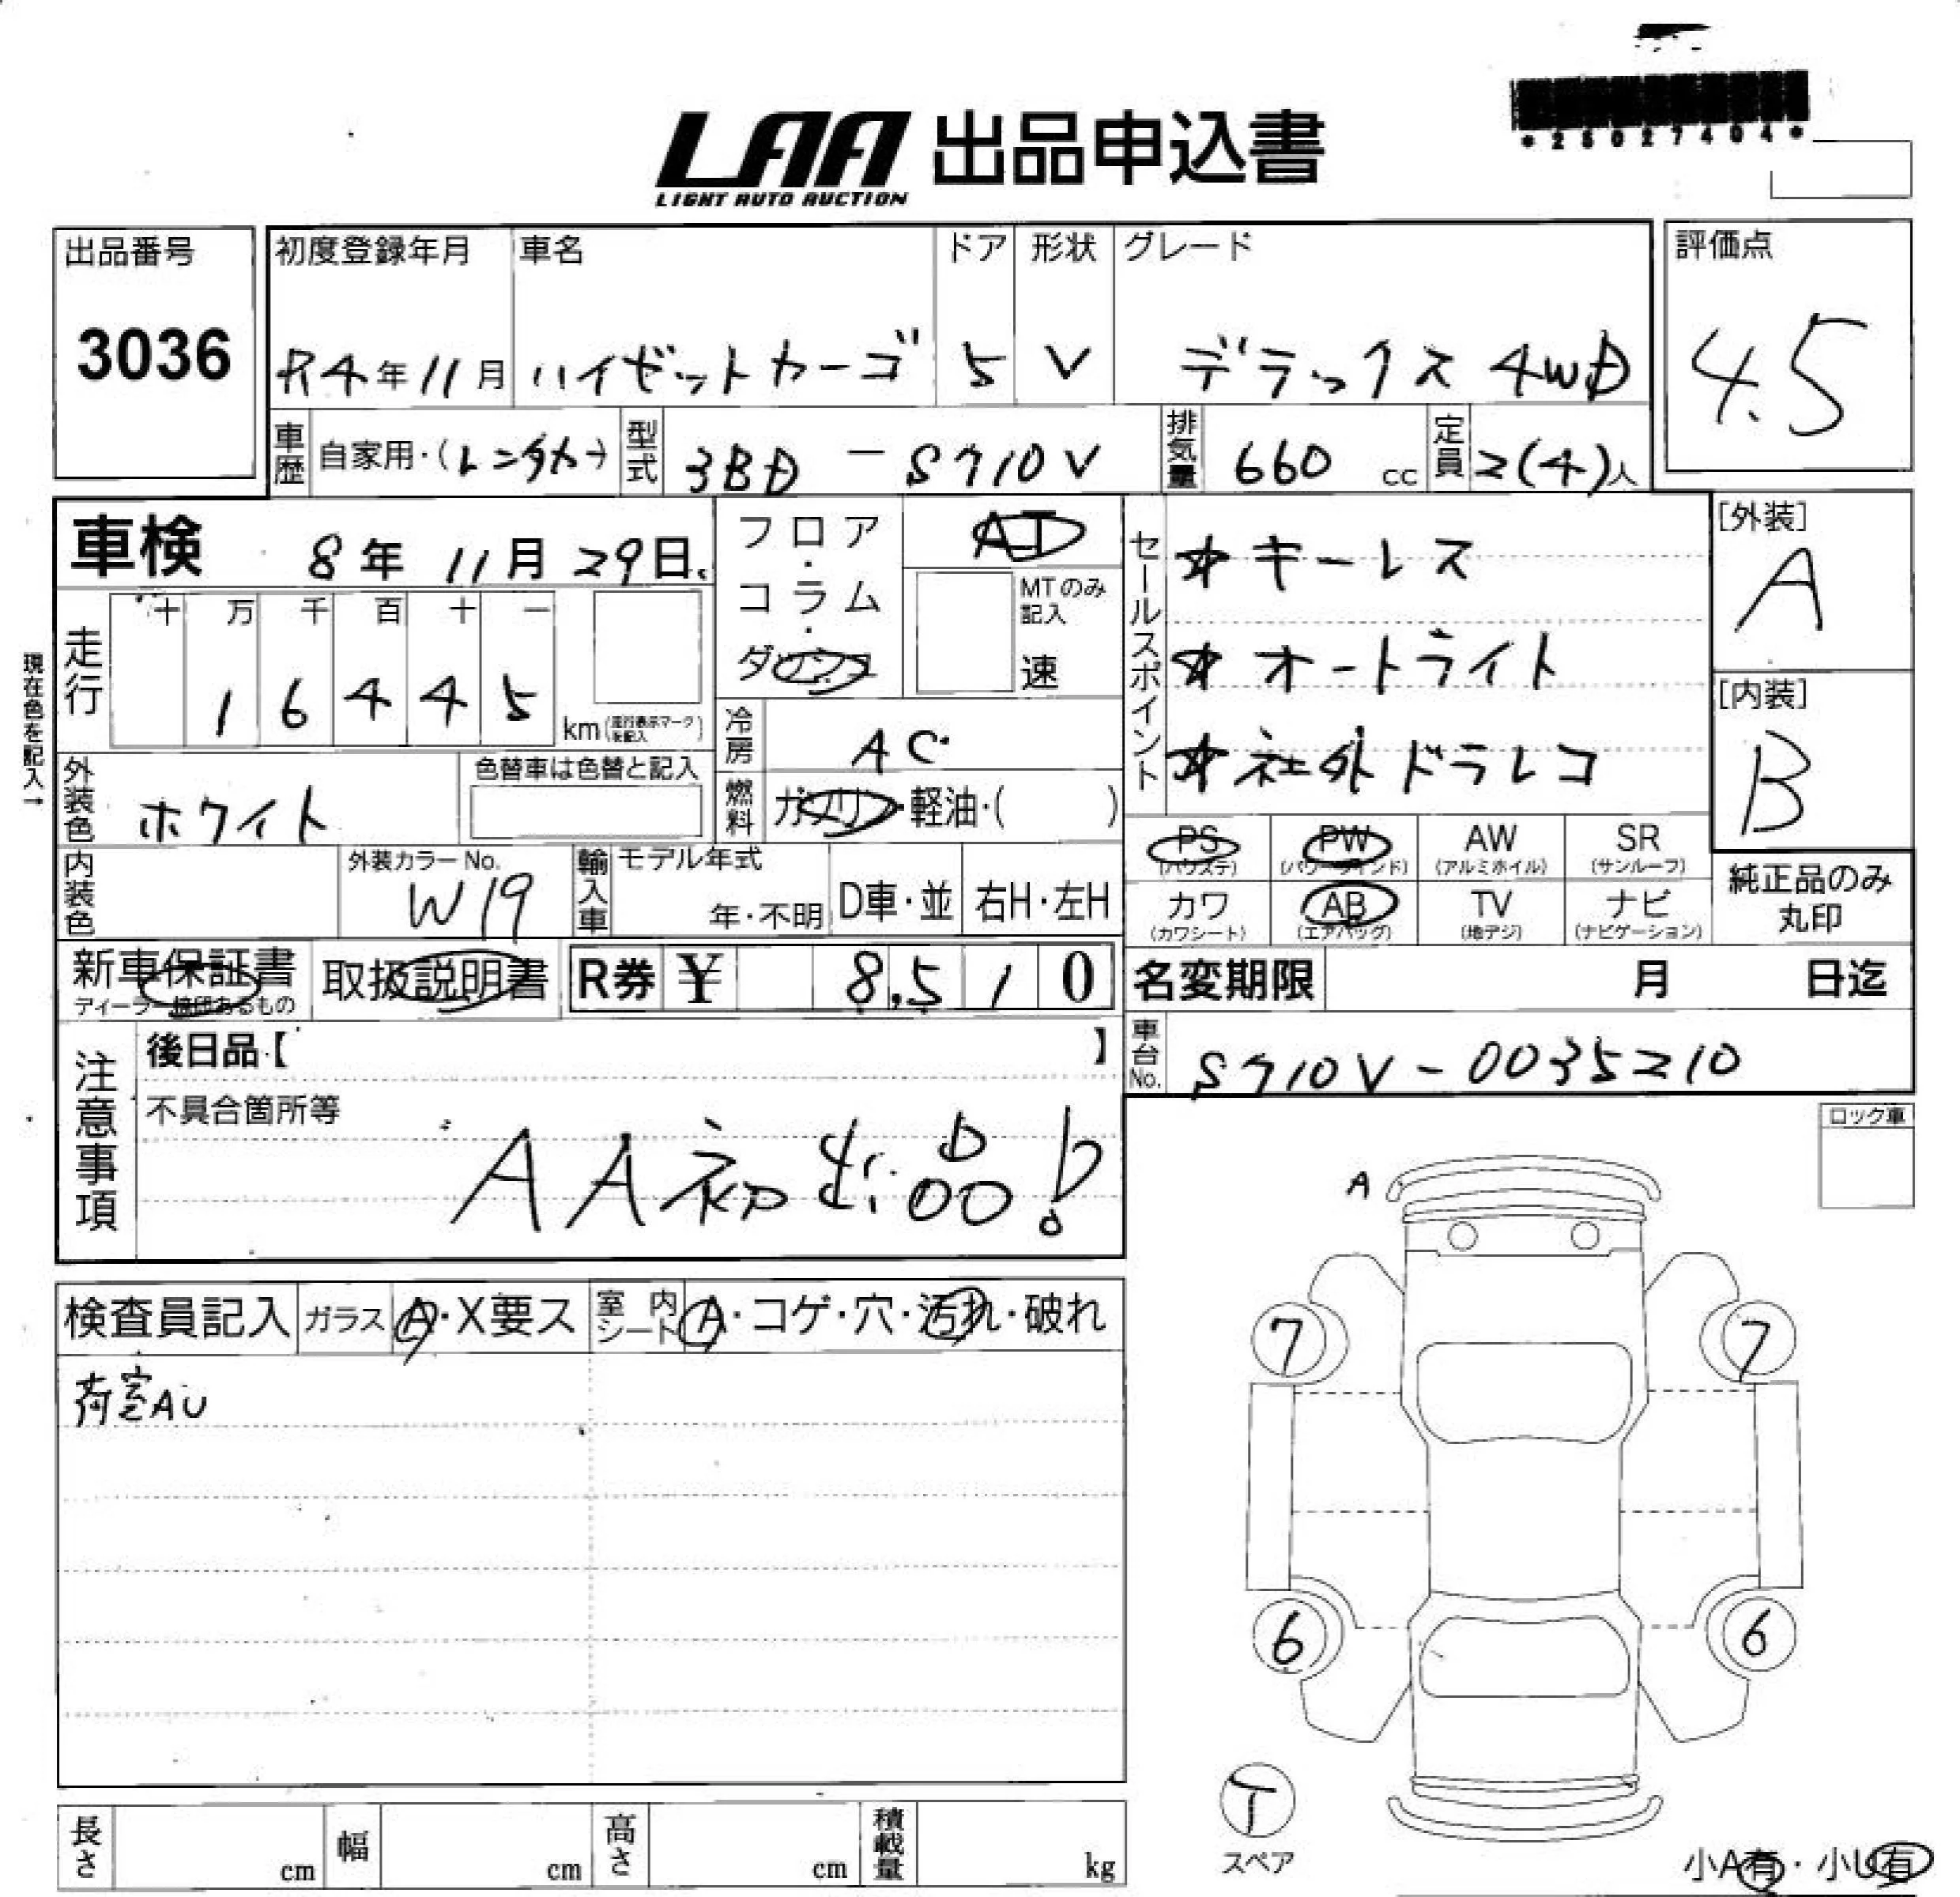 *25027404*
LAA 出品申込書
LIGHT AUTO AUCTION
出品番号 初度登録年月 車名 ドア 形状 グレード 評価点
3036 R4年11月 ハイゼットカーゴ 5 V デラックス 4WD 4.5
車歴 自家用・(レンタカー) 型式 3BD-S710V 排気量 660 cc 定員 2(4)人
車検 8年 11月 29日
フロア・コラム・ダッシュ AT
MTのみ記入 速
セールスポイント
☆キーレス
☆オートライト
☆社外ドラレコ
[外装] A
[内装] B
現在色を記入→
走行 十 万 千 百 十 一
1 6 4 4 5 km (走行表示マークを記入)
冷房 AC
外装色 ホワイト 色替車は色替と記入
燃料 ガソリン・軽油・( )
PS (パワステ) PW (パワーウインド) AW (アルミホイル) SR (サンルーフ)
カワ (カワシート) AB (エアバッグ) TV (地デジ) ナビ (ナビゲーション)
純正品のみ丸印
内装色 外装カラーNo. W19 輸入車 モデル年式 年・不明 D車・並 右H・左H
新車保証書 ディーラー捺印あるもの 取扱説明書 R券 ¥ 8,510
名変期限 月 日迄
車台No. S710V-0035210
注意事項 後日品【 】
不具合箇所等
AA初出品!
ロック車
A
検査員記入 ガラス A・X要ス 室内シート A・コゲ・穴・汚れ・破れ
荷室AU
7 7
6 6
T
スペア
長さ cm 幅 cm 高さ cm 積載量 kg
小A有・小U有